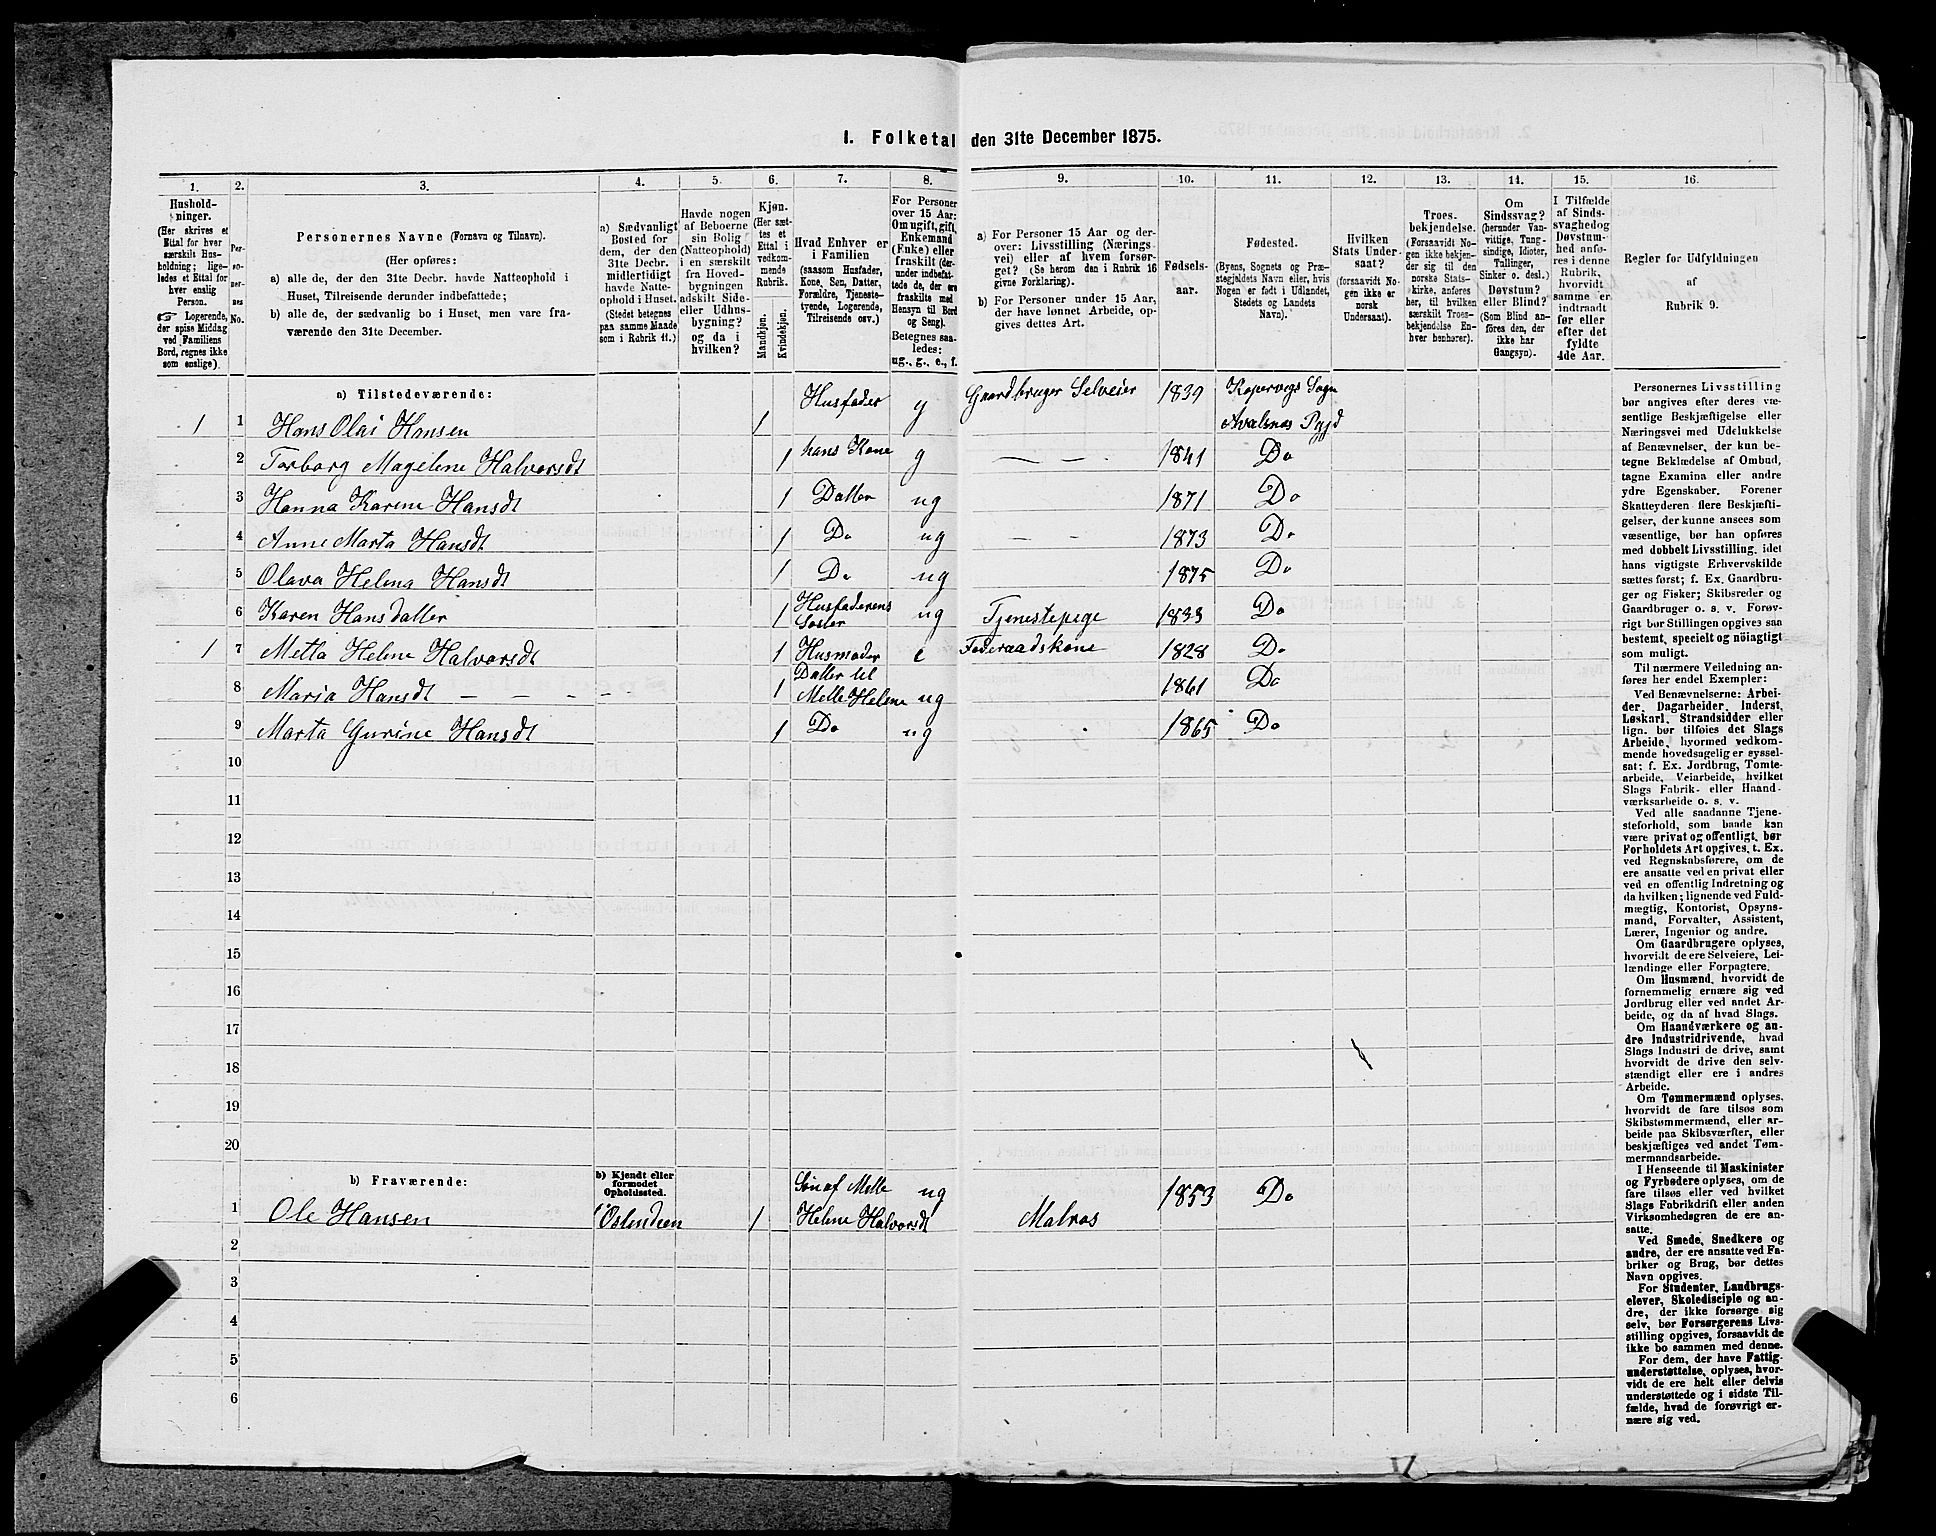 I. Folketal den 31te December 1875.
1. 2. 3. 4. 5. 6. 7. 8. 9. 10. 11. 12. 13. 14. 15. 16.
Hushold-
ninger.
(Her skrives et
Ettal for hver
særskilt Hus-
holdning; lige-
ledes et Ettal for
hver enslig
Person.
☞ Logerende,
der spise Middag
ved Familiens
Bord, regnes ikke
som enslige).
Per-
so-
ner-
nes
No.
Personernes Navne (Fornavn og Tilnavn).
(Her opføres:
a) alle de, der den 31te Decbr. havde Natteophold i
Huset, Tilreisende derunder indbefattede;
b) alle de, der sædvanlig bo i Huset, men vare fra-
værende den 31te December.
a) Sædvanligt
Bosted for
dem, der den
31te Decbr.
midlertidigt
havde Natte-
ophold i Huset.
(Stedet betegnes
paa samme Maade
som i Rubrik 11.)
Havde nogen
af Beboerne
sin Bolig
(Natteophold)
i en særskilt
fra Hoved-
bygningen
adskilt Side-
eller Udhus-
bygning?
og da i
hvilken?
Kjøn.
(Her sæt-
tes et
Ettal i
vedkom-
mende
Rubrik.
Mandkjøn.
Kvindekjøn.
Hvad Enhver er
i Familien
(saasom Husfader,
Kone, Søn, Datter,
Forældre, Tjeneste-
tyende, Logerende,
Tilreisende osv.)
For Personer
over 15 Aar:
Om ugift, gift,
Enkemand
(Enke) eller
fraskilt (der-
under indbefat-
tede de, der ere
fraskilte med
Hensyn til Bord
og Seng).
Betegnes saa-
ledes:
ug., g., e., f.
a) For Personer 15 Aar og der-
over: Livsstilling (Nærings-
vei) eller af hvem forsør-
get? (Se herom den i Rubrik 16
givne Forklaring).
b) For Personer under 15 Aar,
der have lønnet Arbeide, op-
gives dettes Art.
Fødsels-
aar.
Fødested.
(Byens, Sognets og Præ-
stegjældets Navn eller, hvis
Nogen er født i Udlandet,
Stedets og Landets
Navn).
Hvilken
Stats Under-
saat?
(forsaavidt No-
gen ikke er
norsk
Undersaat).
Troes-
bekjendelse.
(Forsaavidt No-
gen ikke bekjen-
der sig til den
norske Stats-
kirke, anføres
her, til hvilken
særskilt Troes-
bekjendelse En-
hver henhører).
Om
Sindssvag?
(herunder Van-
vittige, Tung-
sindige, Idioter,
Tullinger,
Sinker o. desl.)
Døvstum?
eller Blind?
(Som Blind an-
føres den, der
ikke har
Gangsyn).
I Tilfælde
af Sinds-
svaghed og
Døvstum-
hed anfø-
res i denne
Rubrik,
hvorvidt
samme er
indtraadt
før eller
efter det
fyldte
4de Aar.
Regler for Udfyldningen
af
Rubrik 9.
a) Tilstedeværende:
1 1 Hans Olai Hansen 1 Husfader g Gaardbruger Selveier 1839 Kopervigs Sogn
Avalsnæs Pgjd
2 Torborg Magelene Halvorsdt 1 hans Kone g — - — - 1841 Do
3 Hanna Karine Hansdt 1 Datter ug 1871 Do
4 Anne Marta Hansdt 1 Do ug — — 1873 Do
5 Olava Helena Hansdt 1 Do ug 1875 Do
6 Karen Hansdatter 1 Husfaderens
Søster ug Tjenestepige 1833 Do
1 7 Metta Helene Halvorsdt 1 Husmoder e Føderaadskone 1828 Do
8 Maria Hansdt - - - - - 1 Datter til
Mette Helene ug 1861 Do
9 Marta Gurine Hansdt 1 Do ug 1865 Do
10
11
12
13
14
15
16
17
18
19
20
b) Fraværende:
b) Kjendt eller
formodet
Opholdssted.
1 Ole Hansen Ostindien 1 Søn af Mette
Helene Halvorsdt ug Matros 1853 Do
2
3
4
5
6
Personernes Livsstilling
bør angives efter deres væ-
sentlige Beskjæftigelse eller
Næringsvei med Udelukkelse
af Benævnelser, der kun be-
tegne Beklædelse af Ombud,
tagne Examina eller andre
ydre Egenskaber. Forener
Skatteyderen flere Beskjæfti-
gelser, der kunne ansees som
væsentlige, bør han opføres
med dobbelt Livsstilling, idet
hans vigtigste Erhvervskilde
sættes først; f. Ex. Gaardbru-
ger og Fisker; Skibsreder og
Gaardbruger o. s. v. Forøv-
rigt bør Stillingen opgives saa
bestemt, specielt og nöiagtigt
som muligt.
Til nærmere Veiledning an-
føres her endel Exempler:
Ved Benævnelserne: Arbei-
der, Dagarbeider, Inderst,
Løskarl, Strandsidder eller
lign. bør tilføies det Slags
Arbeide, hvormed vedkom-
mende hovedsagelig er syssel-
sat; f. Ex. Jordbrug, Tomte-
arbeide, Veiarbeide, hvilket
Slags Fabrik- eller Haand-
værksarbeide o. s. v.
Ved alle saadanne Tjene-
steforhold, som baade kan
være privat og offentligt, bør
Forholdets Art opgives, t. Ex.
ved Regnskabsførere, om de
ere ansatte ved en privat eller
ved en offentlig Indretning og
da hvilken; lignende ved Fuld-
mægtig, Kontorist, Opsyns-
mand, Forvalter, Assistent,
Lærer, Ingeniør og andre.
Om Gaardbrugere oplyses,
hvorvidt de ere Selveiere, Lei-
lændinge eller Forpagtere.
Om Husmænd, hvorvidt de
fornemmelig ernære sig ved
Jordbrug eller ved andet Ar-
beide, og da af hvad Slags.
Om Haandværkere og an-
dre Industridrivende, hvad
Slags Industri de drive, samt
hvorvidt de drive den selv-
stændigt eller ere i andres
Arbeide.
Om Tømmermænd oplyses,
hvorvidt de fare tilsøs som
Skibstømmermænd, eller ar-
beide paa Skibsværfter, eller
beskjæftiges ved andet Tøm-
mermandsarbeide.
I Henseende til Maskinister
og Fyrbødere oplyses, om de
fare tilsøs eller ved hvilket
Slags Fabrikdrift eller anden
Virksomhedsgren de ere an-
satte.
Ved Smede, Snedkere og
andre, der ere ansatte ved Fa-
briker og Brug, bør dettes
Navn opgives.
For Studenter, Landbrugs-
elever, Skoledisciple og an-
dre, der ikke forsørge sig
selv, bør Forsørgerens Livs-
stilling opgives, forsaavidt de
ikke bo sammen med denne.
For dem, der have Fattig-
understøttelse, oplyses, hvor-
vidt de ere helt eller delvis
understøttede og i sidste Til-
fælde, hvad de forøvrigt er-
nære sig ved.